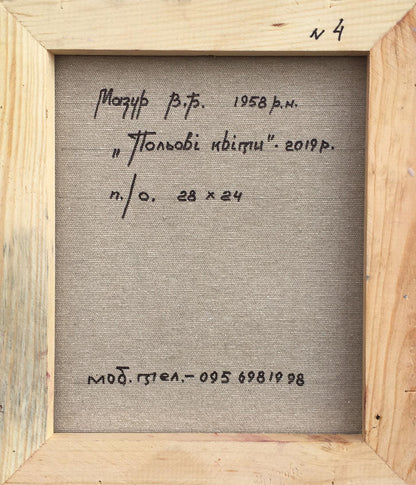 № 4
Мазур В.Б. 1958 р.н.
„Польові квіти". 2019 р.
п./о. 28 x 24
моб. тел.- 095 6981998